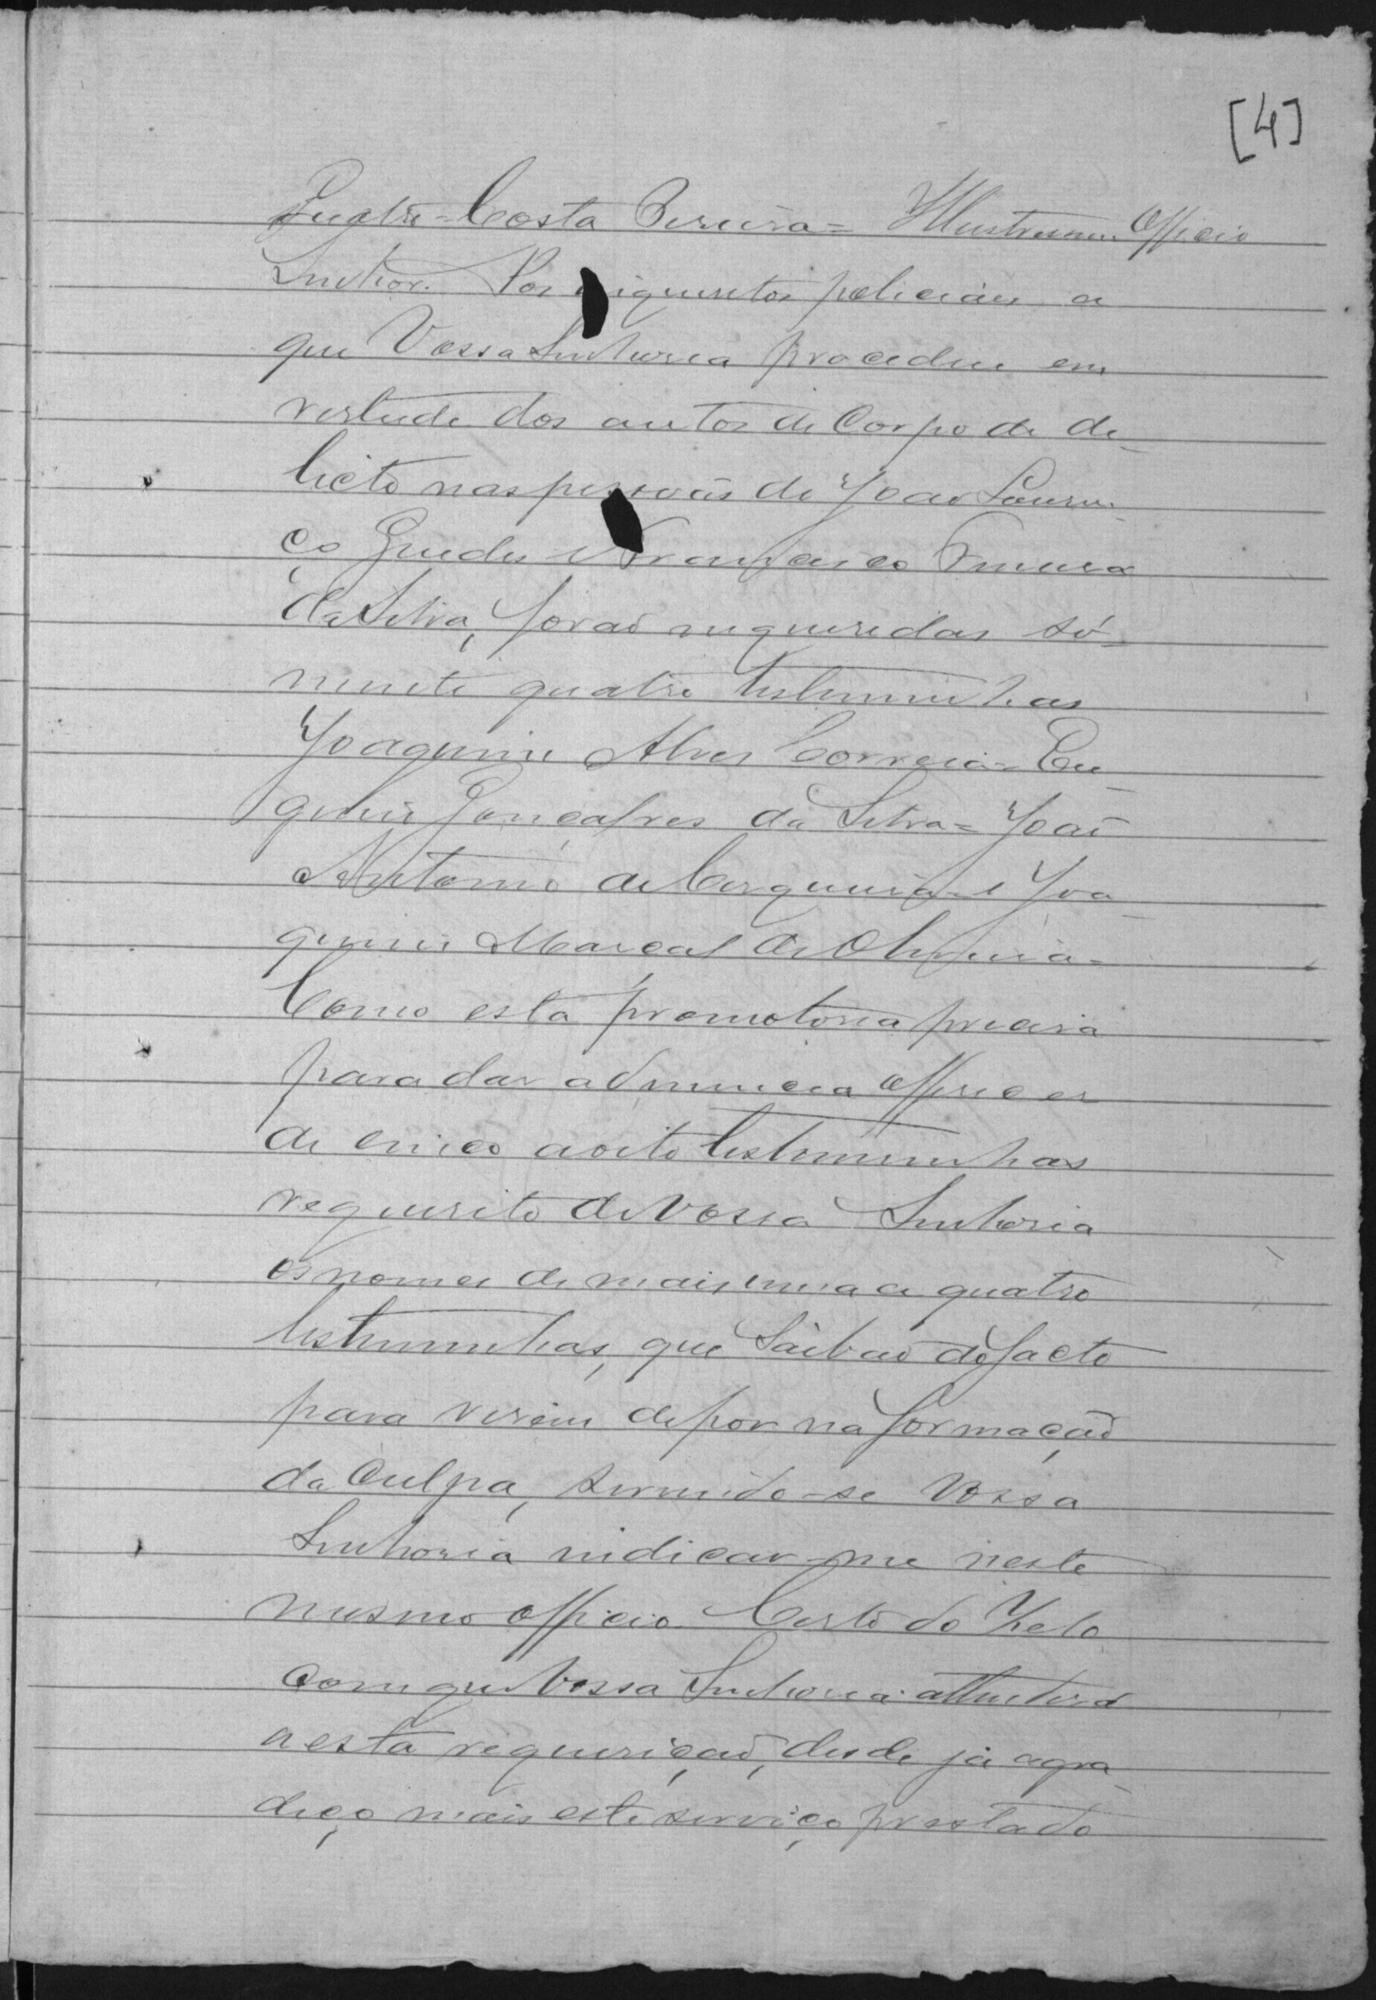 [4]
Costa Pereira = Illustrissimo Officio
Senhor. Pos inqueritos policiáes a
que Vossa Senhoria procedeu em
vertude dos autos de Corpo de de-
licto nas pessoas de João Louren-
ço Guedes e Francisco Pereira
da Silva, forão requeridas só-
mente quatro testeminhas
Joaquim Alves Correia = Eu
genio Gonçalves da Silva = João
Antonio de Cerqueira e Joa-
quim Marcal de Oliveira =
Como esta promotoria precisa
para dar a denuncia offerecer
de cinco a oito testeminhas
requisito de Vossa Senhoria
os nomes de mais uma a quatro
testeminhas, que saibão do facto
para virem depor na formação
da Culpa, servindo-se Vossa
Senhoria indicar-me neste
mesmo officio. Certo do Zelo
com que Vossa Senhoria attenderá
a esta requisição, desde já agra-
deço mais este serviço prestado